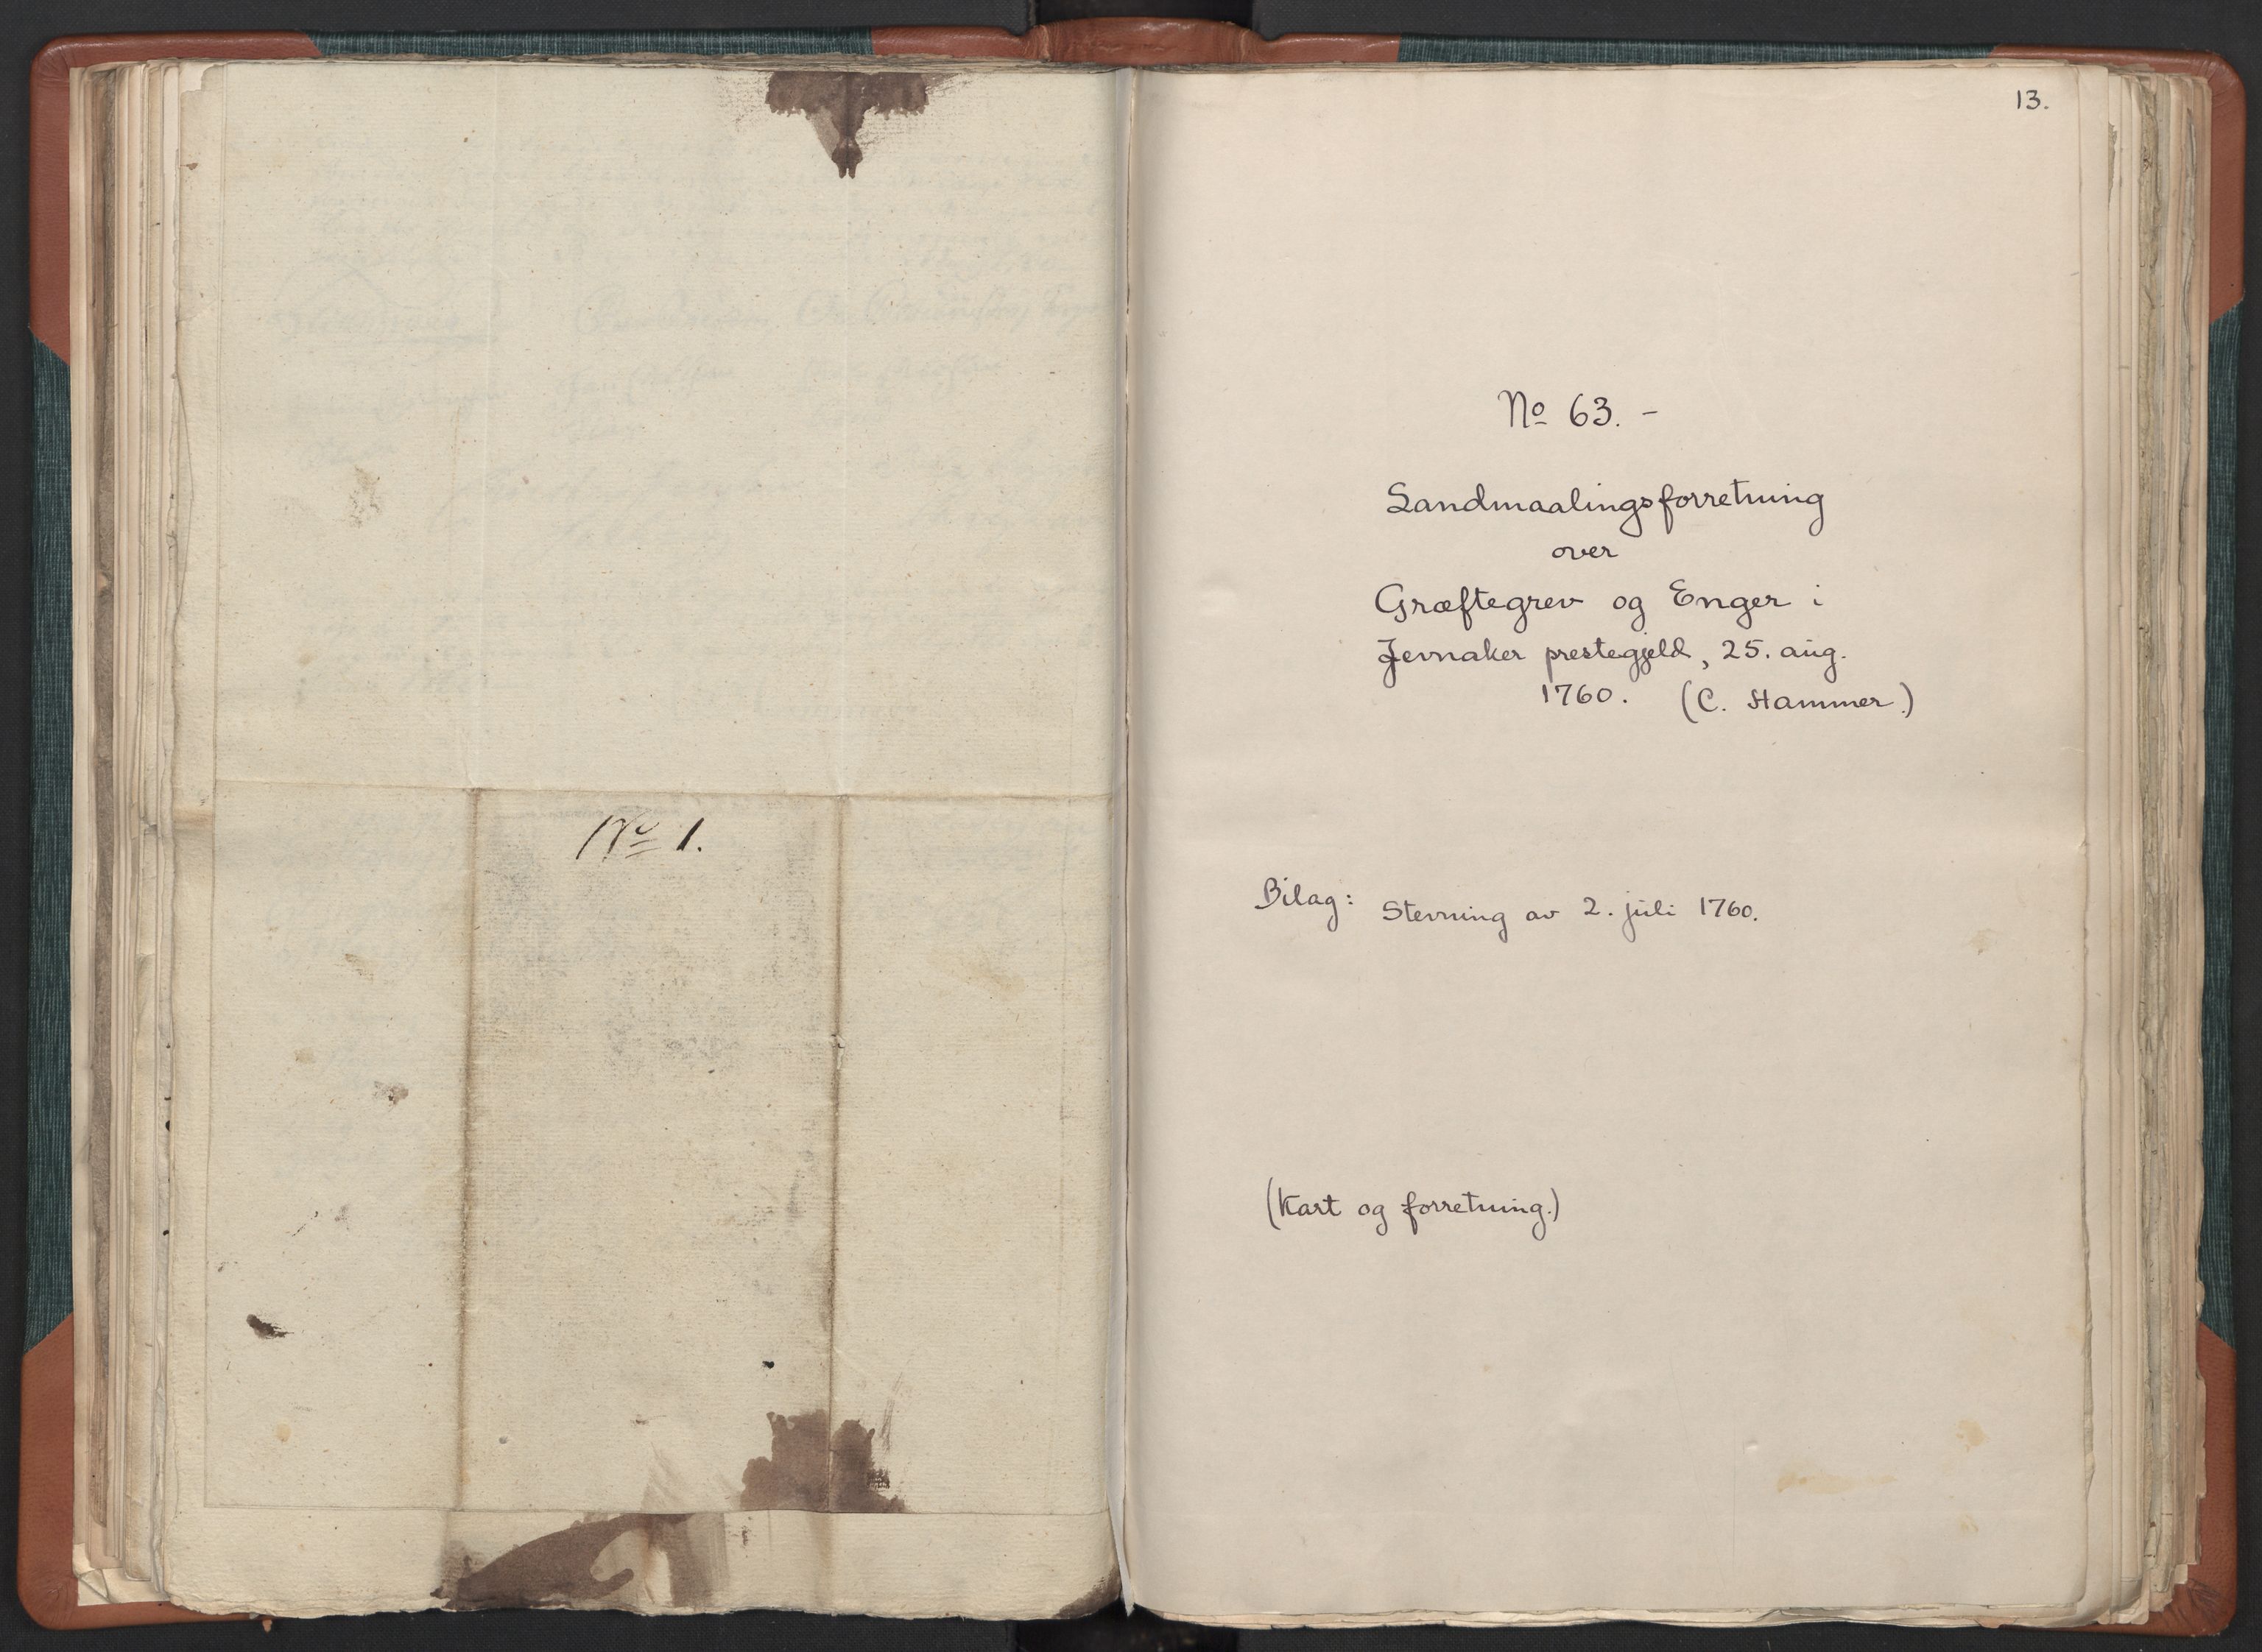 No 1.
13.
No 63. -
Landmaalingsforretning
over
Græftegrev og Enger i
Jevnaker prestegjeld, 25. aug.
1760. (C. Hammer.)
Bilag: Stevning av 2. juli 1760.
(Kart og forretning.)